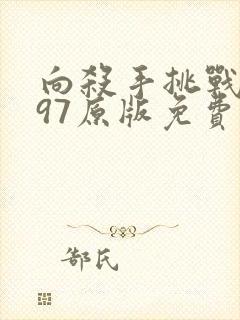 向殺手挑戰
97原版免費
郜氏